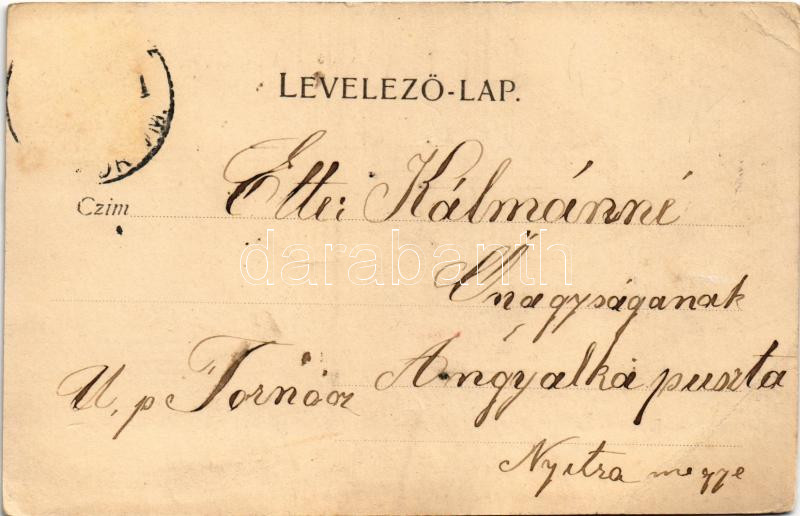 LEVELEZŐ-LAP.
1
Czim Ettei Kálmánné
Őnagyságanak
U. p Tornócz Angyalka puszta
Nyitra megye
darabanth